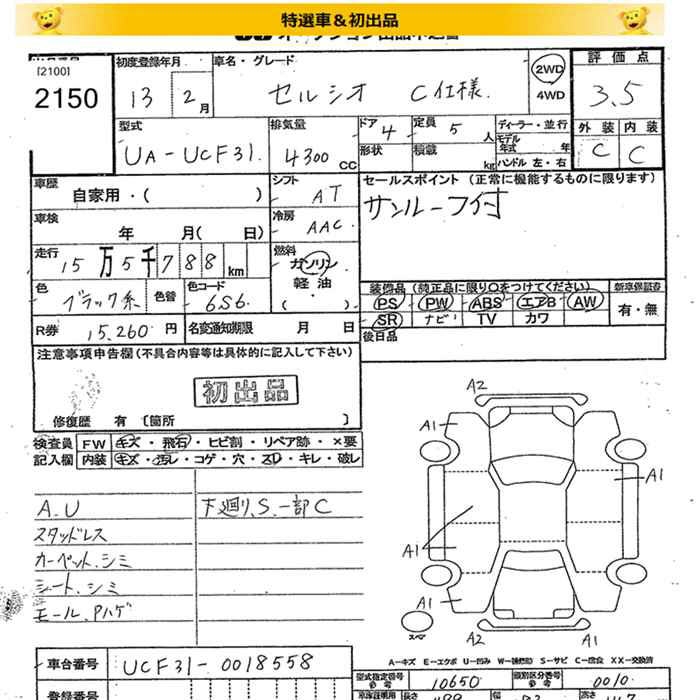 特選車＆初出品
[2100]
2150
初度登録年月
13 2月
車名・グレード
セルシオ C仕様.
2WD
4WD
評価点
3.5
外装 内装
C C
型式
UA-UCF31.
排気量
4300cc
ドア 4
定員 5人
形状
積載 kg
ディーラー・並行
モデル年式 年
ハンドル 左・右
車歴
自家用・( )
シフト
AT
セールスポイント (正常に機能するものに限ります)
サンルーフ付
車検
年 月( 日)
冷房
AAC
走行
15万5千788km
燃料
ガソリン
軽油
( )
色
ブラック系
色替
色コード
6S6
R券 15,260 円
名変通知期限 月 日
装備品 (純正品に限り○をつけてください)
PS PW ABS エアB AW
SR ナビ TV カワ
新車保証書
有・無
後日品
注意事項申告欄 (不具合内容等は具体的に記入して下さい)
初出品
修復歴 有 〔箇所 〕
検査員 FW キズ・飛石・ヒビ割・リペア跡・×要
記入欄 内装 キズ・汚レ・コゲ・穴・スレ・キレ・破レ
A.U
下廻り.S.一部C
スタッドレス
カーペット.シミ
シート.シミ
モール.Pハゲ
A2
A1
A1
A1
A1
A2
A1
スペア
A-キズ E-エクボ U-凹み W-補修跡 S-サビ C-腐食 X-要交換 XX-交換済
車台番号
UCF31-0018558
型式指定番号
10650
類別区分番号
0010
登録番号